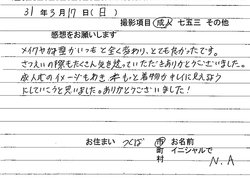 31年3月17日(日)
撮影項目 成人 七五三 その他
感想をお願いします
メイクやは髪がいつもと全く変わり、とても良かったです。
さつえいの際もたくさん気を遣っていただきありがとうございました。
成人式のイメージもわき、本もっと着物がキレイに見えるよう
にしていこうと思いました。ありがとうございました!
お住まい つくば 市 お名前
町 イニシャルで
村 N.A